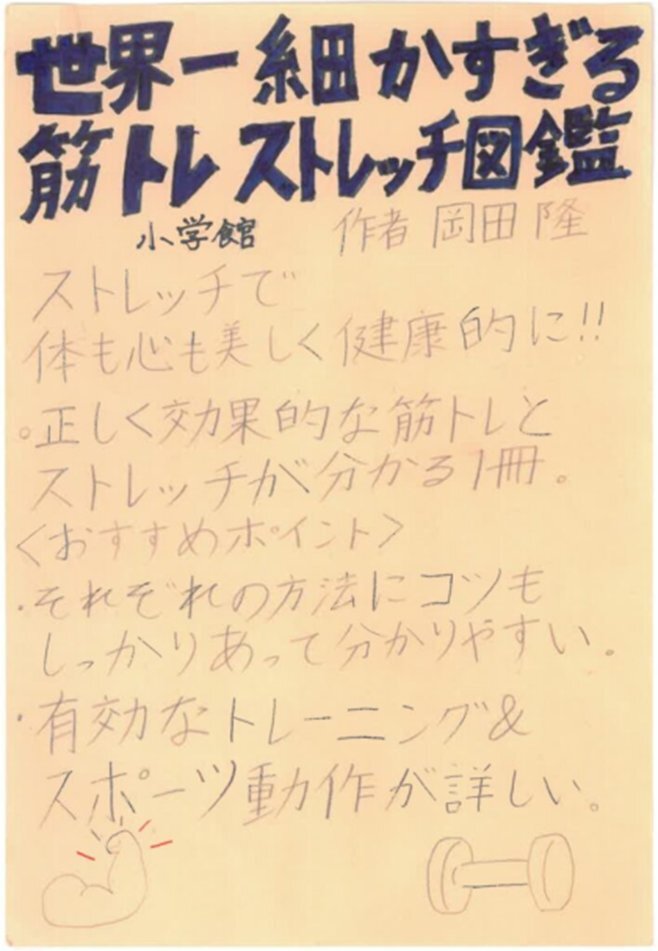 世界一細かすぎる
筋トレストレッチ図鑑
小学館 作者 岡田 隆
ストレッチで
体も心も美しく健康的に!!
。正しく効果的な筋トレと
ストレッチが分かる1冊。
<おすすめポイント>
・それぞれの方法にコツも
しっかりあって分かりやすい。
・有効なトレーニング&
スポーツ動作が詳しい。